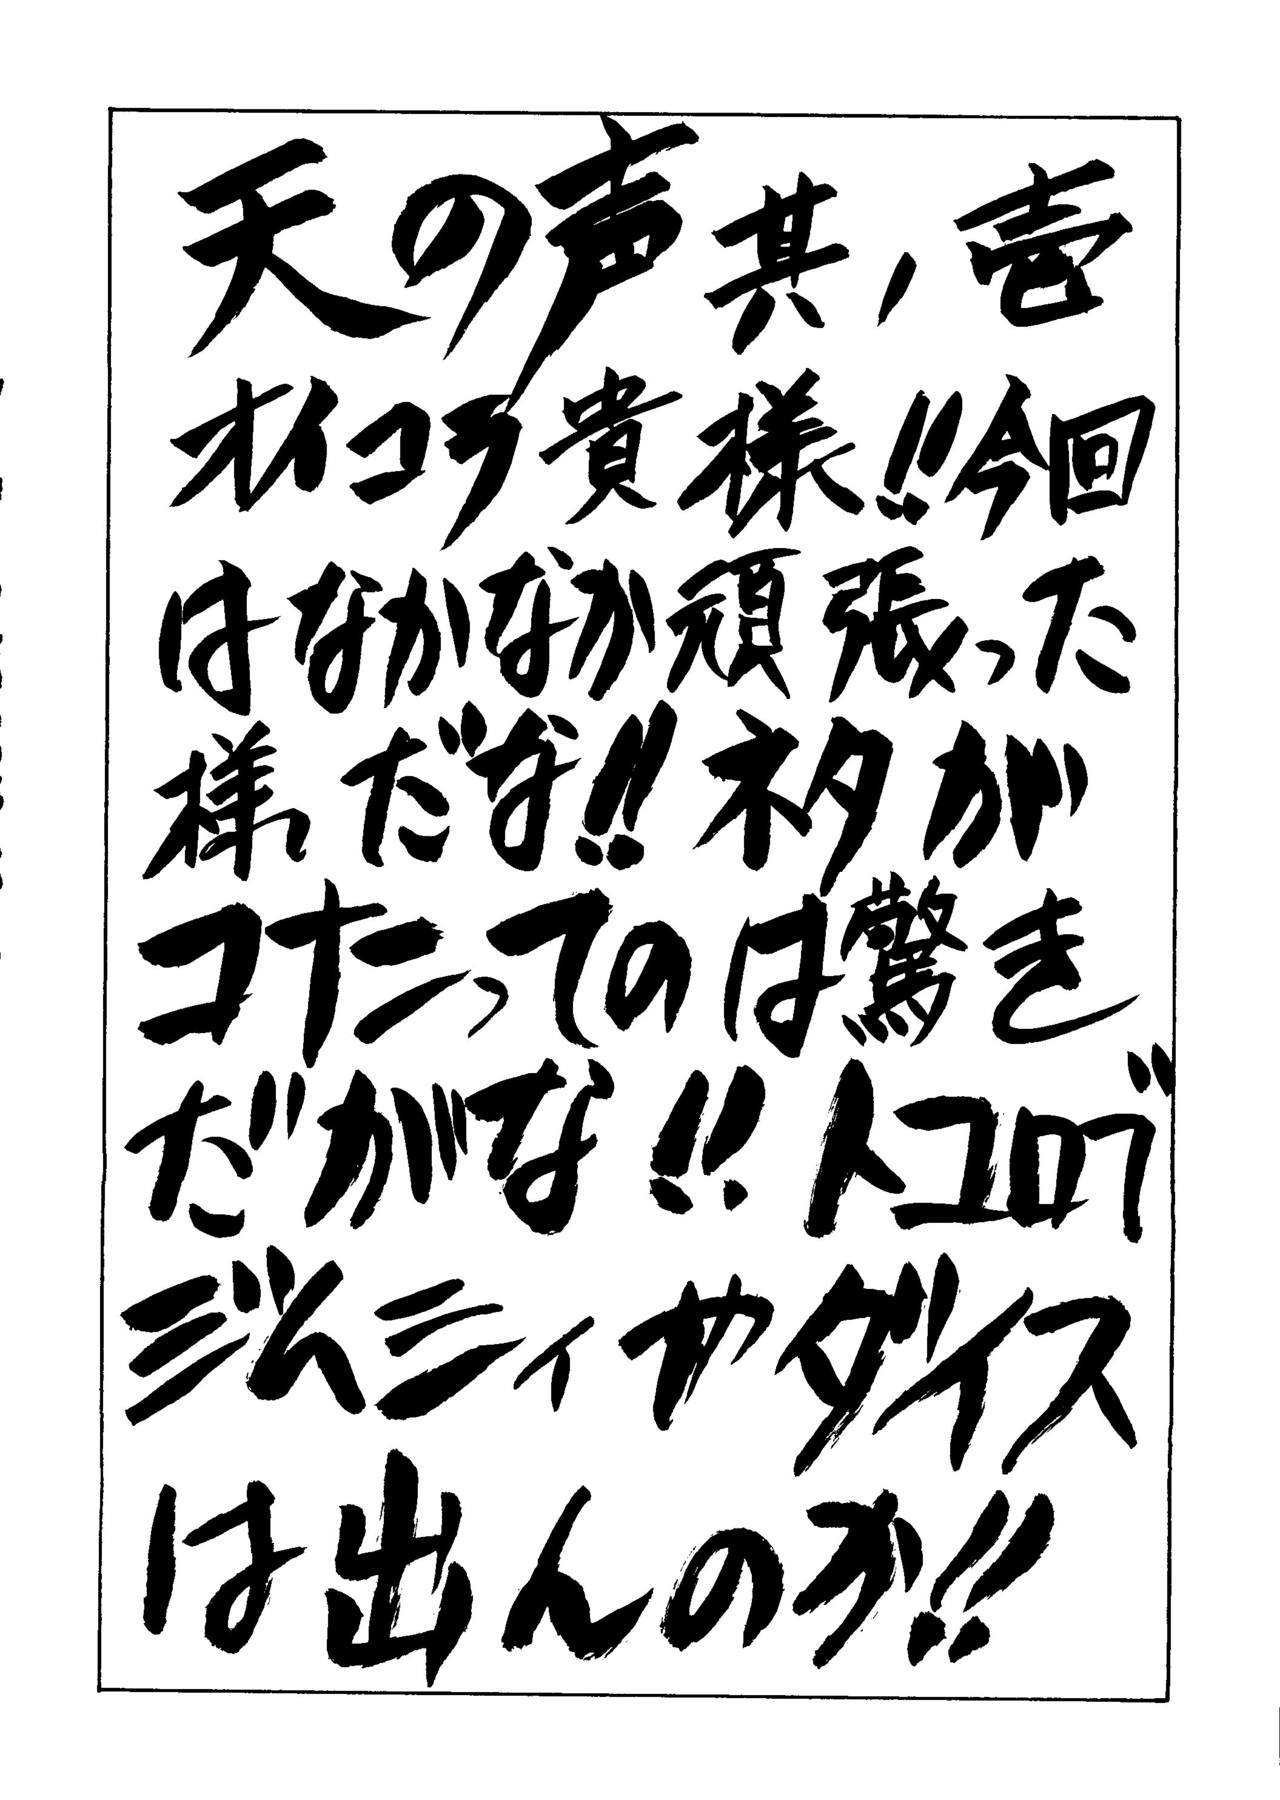 天の声其ノ壱
オイコラ貴様!!今回
はなかなか頑張った
様だな!!ネタが
コナニってのは驚き
だがな!!トコロで
ジムニィやダイス
は出んのか!!